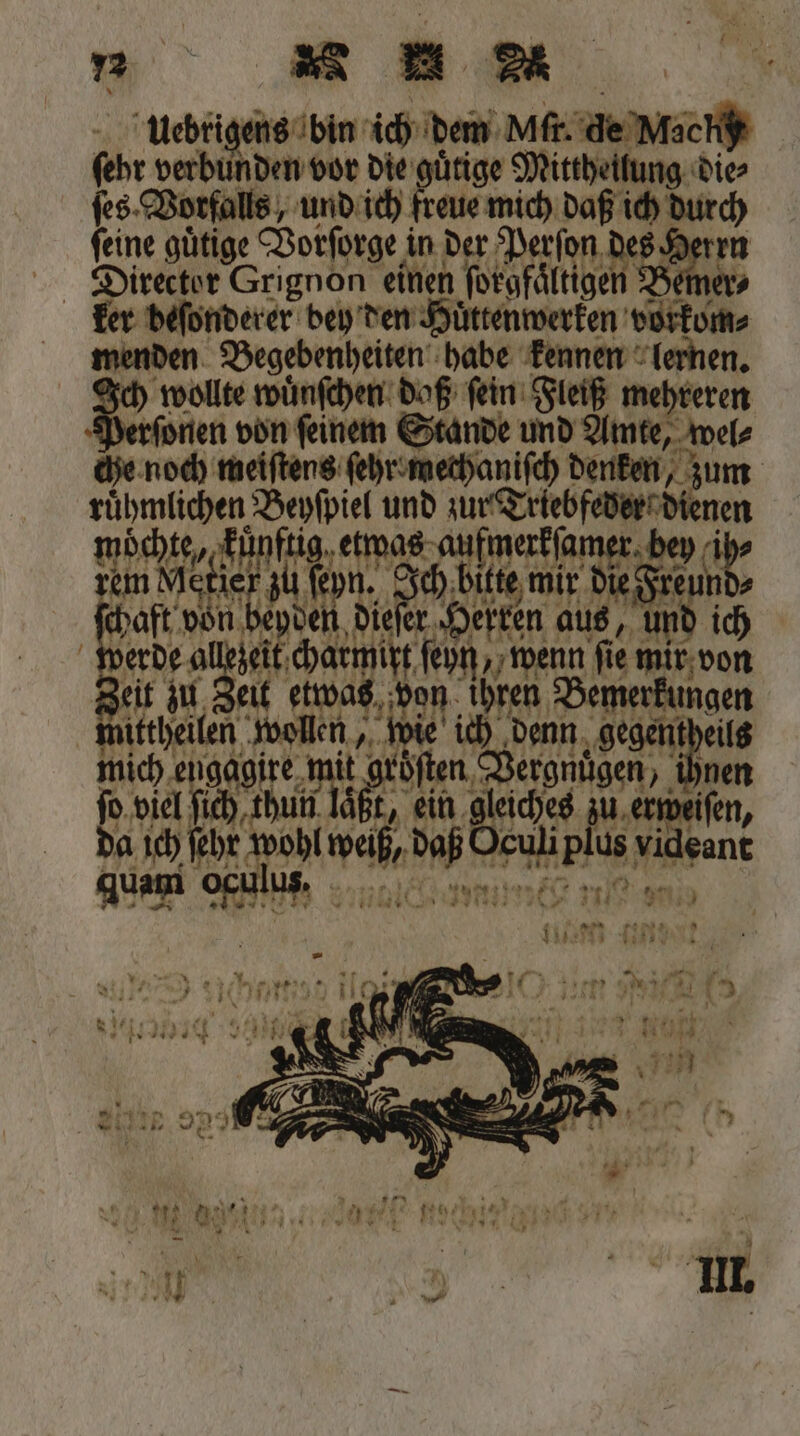 72
Uebrigens bin ich dem Mſr. de Machy
ſehr verbunden vor die guͤtige Mittheilung die⸗
ſes Vorfalls, und ich freue mich daß ich durch
ſeine guͤtige Vorſorge in der Perſon des Herrn
Director Grignon einen ſorgfaͤltigen Bemer⸗
ker beſonderer bey den Huͤttenwerken vorkom⸗
menden Begebenheiten habe kennen lernen.
Ich wollte wuͤnſchen daß ſein Fleiß mehreren
Perſonen von ſeinem Stande und Amte, wel⸗
che noch meiſtens ſehr mechaniſch denken, zum
ruͤhmlichen Beyſpiel und zur Triebfeder dienen
moͤchte, kuͤnftig etwas aufmerkſamer bey ih⸗
rem Metier zu ſeyn. Ich bitte mir die Freund⸗
ſchaft von beyden dieſer Herren aus, und ich
werde allezeit charmirt ſeyn, wenn ſie mir von
Zeit zu Zeit etwas von ihren Bemerkungen
mittheilen wollen, wie ich denn gegentheils
mich engagire mit groͤſten Vergnuͤgen, ihnen
ſo viel ſich thun laͤßt, ein gleiches zu erweiſen,
da ich ſehr wohl weiß, daß Oculi plus videant
quam oculus.
III.